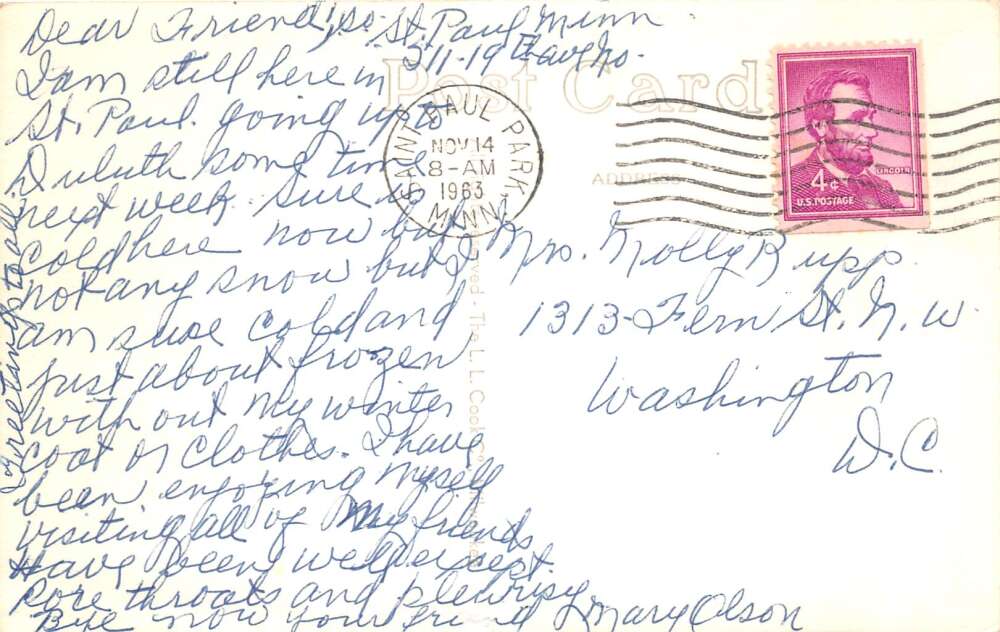 Dear Friend, So. St. Paul Minn
311-19th ave No.
I am still here in
St. Paul. going up to
Duluth some time
next week. sure is
cold here now but
not any snow but I
am sure cold and
just about frozen
with out my winter
coat or clothes. I have
been enjoying myself
visiting all of my friends
Have been well except
sore throats and pleurisy
Bye now your friend Mary Olson
greetings to all
Post Card
ADDRESS
SAINT PAUL PARK
NOV 14
8-AM
1963
MINN
LINCOLN
4¢
U.S. POSTAGE
Mrs. Molly Rupp
1313-Fern St. N.W.
Washington
D.C.
The L. L. Cook Co.